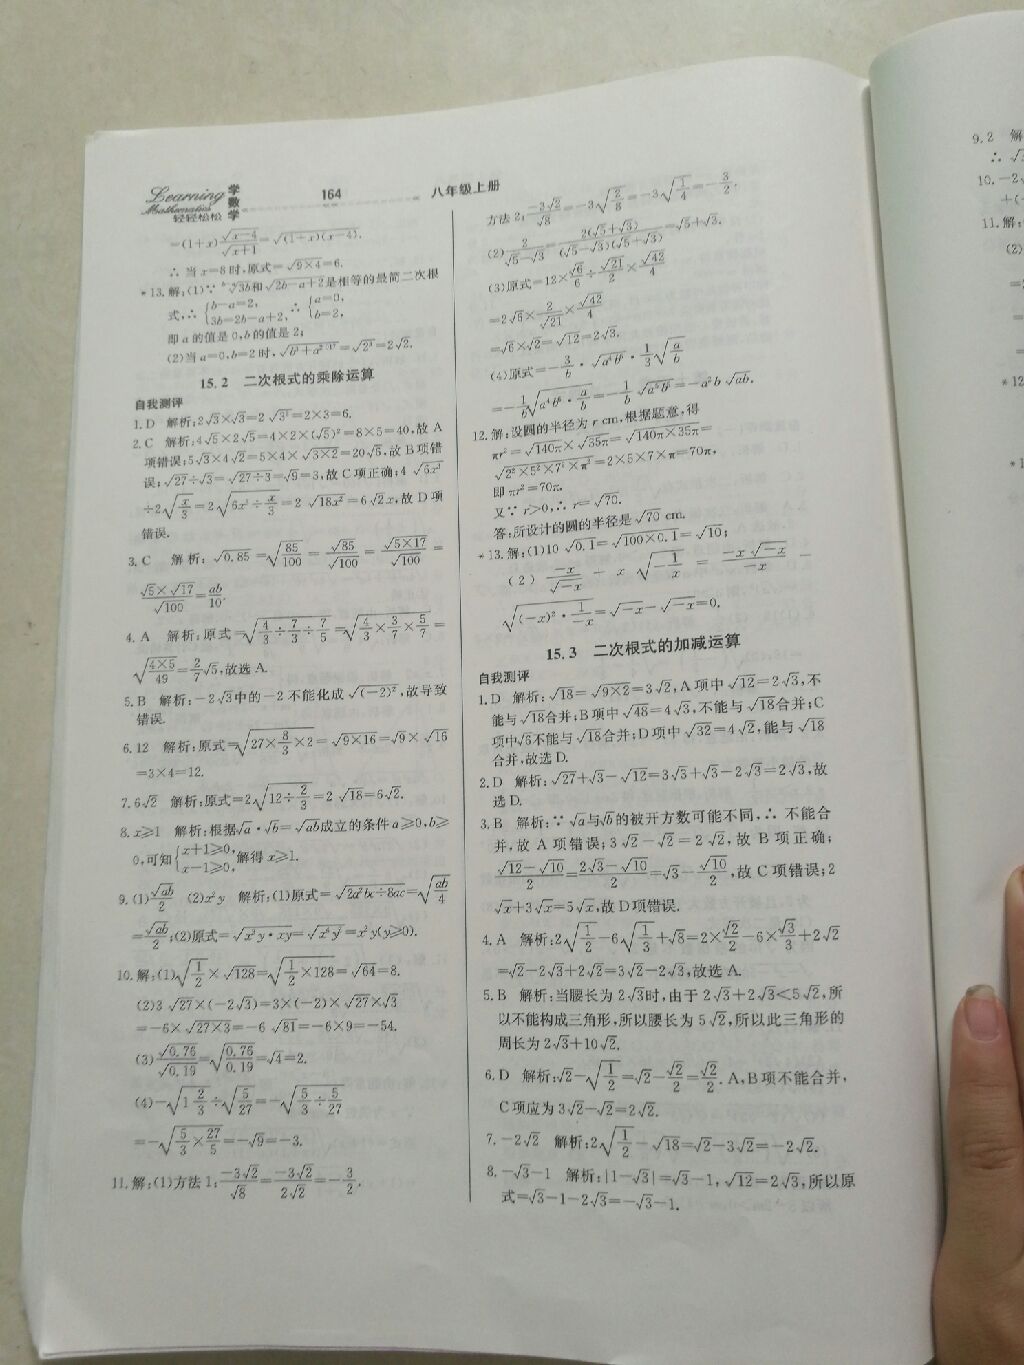 Learning
Mathematics
轻轻松松
学数学
164
八年级上册
=(1+x)√(x-4)/√(x+1)=√((1+x)(x-4)).
∴当x=8时,原式=√(9×4)=6.
式,∴{b-a=2, 3b=2b-a+2, ∴{a=0, b=2,
即a的值是0,b的值是2;
15.2 二次根式的乘除运算
自我测评
1.D 解析:2√3×√3=2√3²=2×3=6.
2.C 解析:4√5×2√5=4×2×(√5)²=8×5=40,故A
项错误;5√3×4√2=5×4×√(3×2)=20√6,故B项错
误;√27÷√3=√(27÷3)=√9=3,故C项正确;4√(6x³)
÷2√(x/3)=2√(6x³÷x/3)=2√(18x²)=6√2x,故D项
错误.
3.C 解析:√0.85=√(85/100)=√85/√100=√(5×17)/√100=
(√5×√17)/√100=ab/10.
4.A 解析:原式=√(4/3÷7/3÷7/5)=√(4/3×3/7×5/7)=
√((4×5)/49)=2/7√5,故选A.
5.B 解析:-2√3中的-2不能化成√(-2)²,故导致
错误.
6.12 解析:原式=√(27×8/3×2)=√(9×16)=√9×√16
=3×4=12.
7.6√2 解析:原式=2√(12÷2/3)=2√18=6√2.
8.x≥1 解析:根据√a·√b=√ab成立的条件a≥0,b≥
0,可知{x+1≥0, x-1≥0, 解得x≥1.
9.(1)√ab/2 (2)x²y 解析:(1)原式=√(2a²bc÷8ac)=√(ab/4)
=√ab/2;(2)原式=√(x³y·xy)=√(x⁴y²)=x²y(y≥0).
10.解:(1)√(1/2)×√128=√(1/2×128)=√64=8.
(2)3√27×(-2√3)=3×(-2)×√27×√3
=-6×√(27×3)=-6√81=-6×9=-54.
(3)√0.76/√0.19=√(0.76/0.19)=√4=2.
(4)-√(1 2/3)÷√(5/27)=-√(5/3÷5/27)
=-√(5/3×27/5)=-√9=-3.
11.解:(1)方法1:-3√2/√8=-3√2/2√2=-3/2.
方法2:-3√2/√8=-3√(2/8)=-3√(1/4)=-3/2.
(2)2/(√5-√3)=2(√5+√3)/((√5-√3)(√5+√3))=√5+√3.
(3)原式=12×√6/6÷√21/2×√42/4
=2√6×2/√21×√42/4
=√6×√2=√12=2√3.
12.解:设圆的半径为r cm,根据题意,得
πr²=√(140π)×√(35π)=√(140π×35π)=
√(2²×5²×7²×π²)=2×5×7×π=70π,
即πr²=70π.
又∵r>0,∴r=√70.
答:所设计的圆的半径是√70 cm.
*13.解:(1)10√0.1=√(100×0.1)=√10;
(2)-x/√-x - x√(-1/x)=(-x√-x)/-x -
√((-x)²·1/-x)=√-x-√-x=0.
15.3 二次根式的加减运算
自我测评
1.D 解析:√18=√(9×2)=3√2,A项中√12=2√3,不
能与√18合并;B项中√48=4√3,不能与√18合并;C
项中√6不能与√18合并;D项中√32=4√2,能与√18
合并,故选D.
2.D 解析:√27+√3-√12=3√3+√3-2√3=2√3,故
选D.
3.B 解析:∵√a与√b的被开方数可能不同,∴不能合
并,故A项错误;3√2-√2=2√2,故B项正确;
(√12-√10)/2=(2√3-√10)/2=√3-√10/2,故C项错误;2
√x+3√x=5√x,故D项错误.
4.A 解析:2√(1/2)-6√(1/3)+√8=2×√2/2-6×√3/3+2√2
=√2-2√3+2√2=3√2-2√3,故选A.
5.B 解析:当腰长为2√3时,由于2√3+2√3<5√2,所
以不能构成三角形,所以腰长为5√2,所以此三角形的
周长为2√3+10√2.
6.D 解析:√2-√(1/2)=√2-√2/2=√2/2.A,B项不能合并,
C项应为3√2-√2=2√2.
7.-2√2 解析:2√(1/2)-√18=√2-3√2=-2√2.
8.-√3-1 解析:|1-√3|=√3-1,√12=2√3,所以原
式=√3-1-2√3=-√3-1.
9.2 解
10.-2
11.解:
(2)